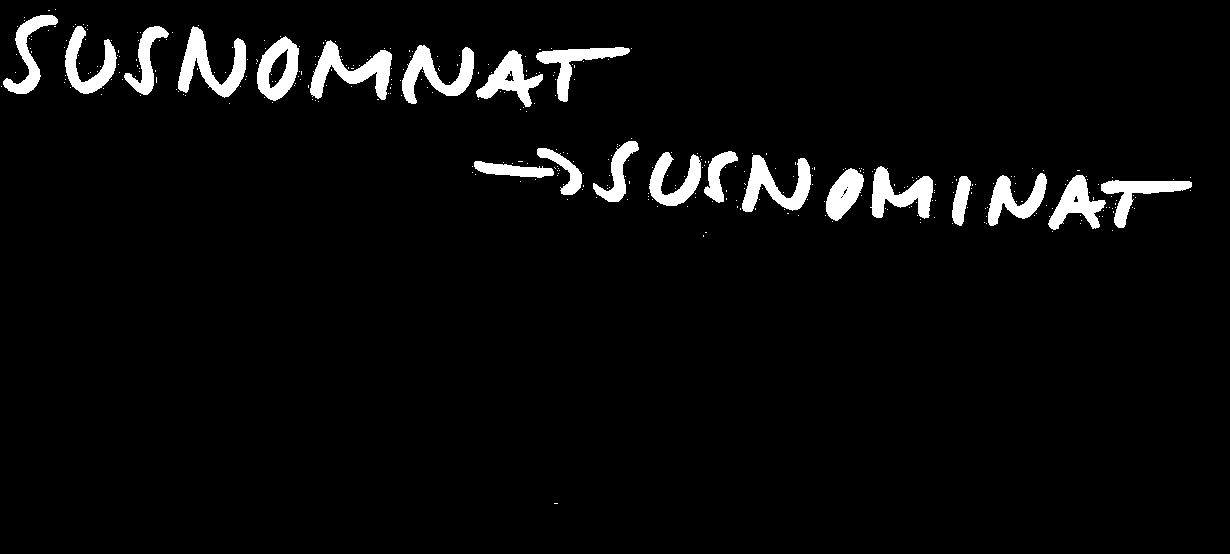 SUSNOMNAT
→SUSNOMINAT